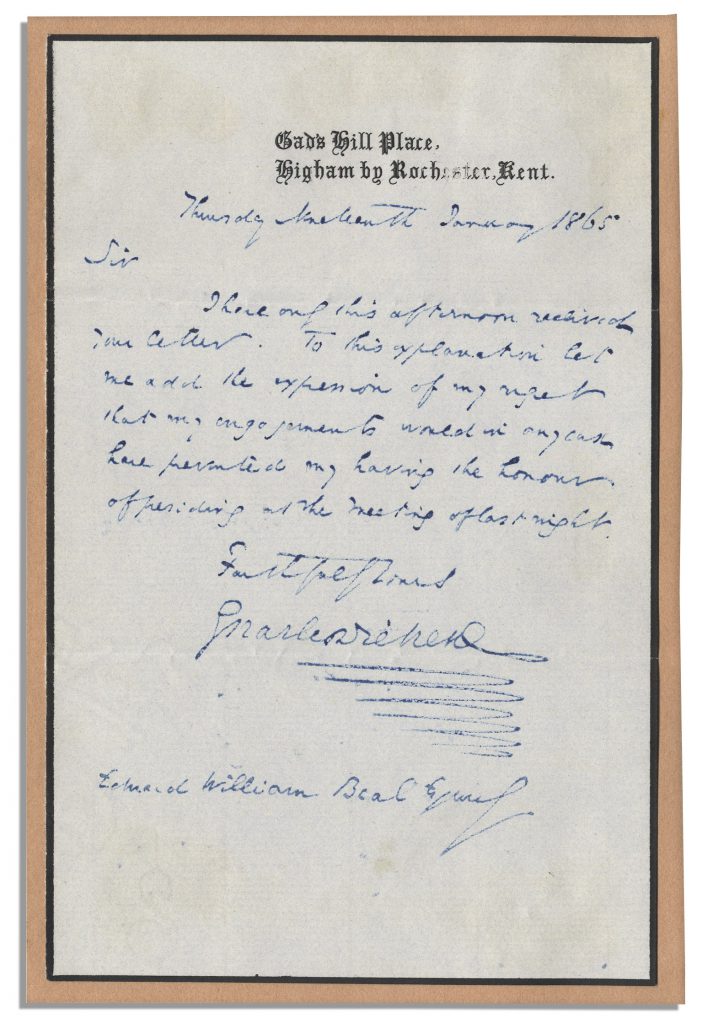 Gad's Hill Place,
Higham by Rochester, Kent.
Thursday Nineteenth January 1865
Sir
I have only this afternoon received
your letter. To this explanation let
me add the expression of my regret
that my engagements would in any case
have prevented my having the honour
of presiding at the meeting of last night.
Faithfully Yours
Charles Dickens
Edward William Beal Esquire